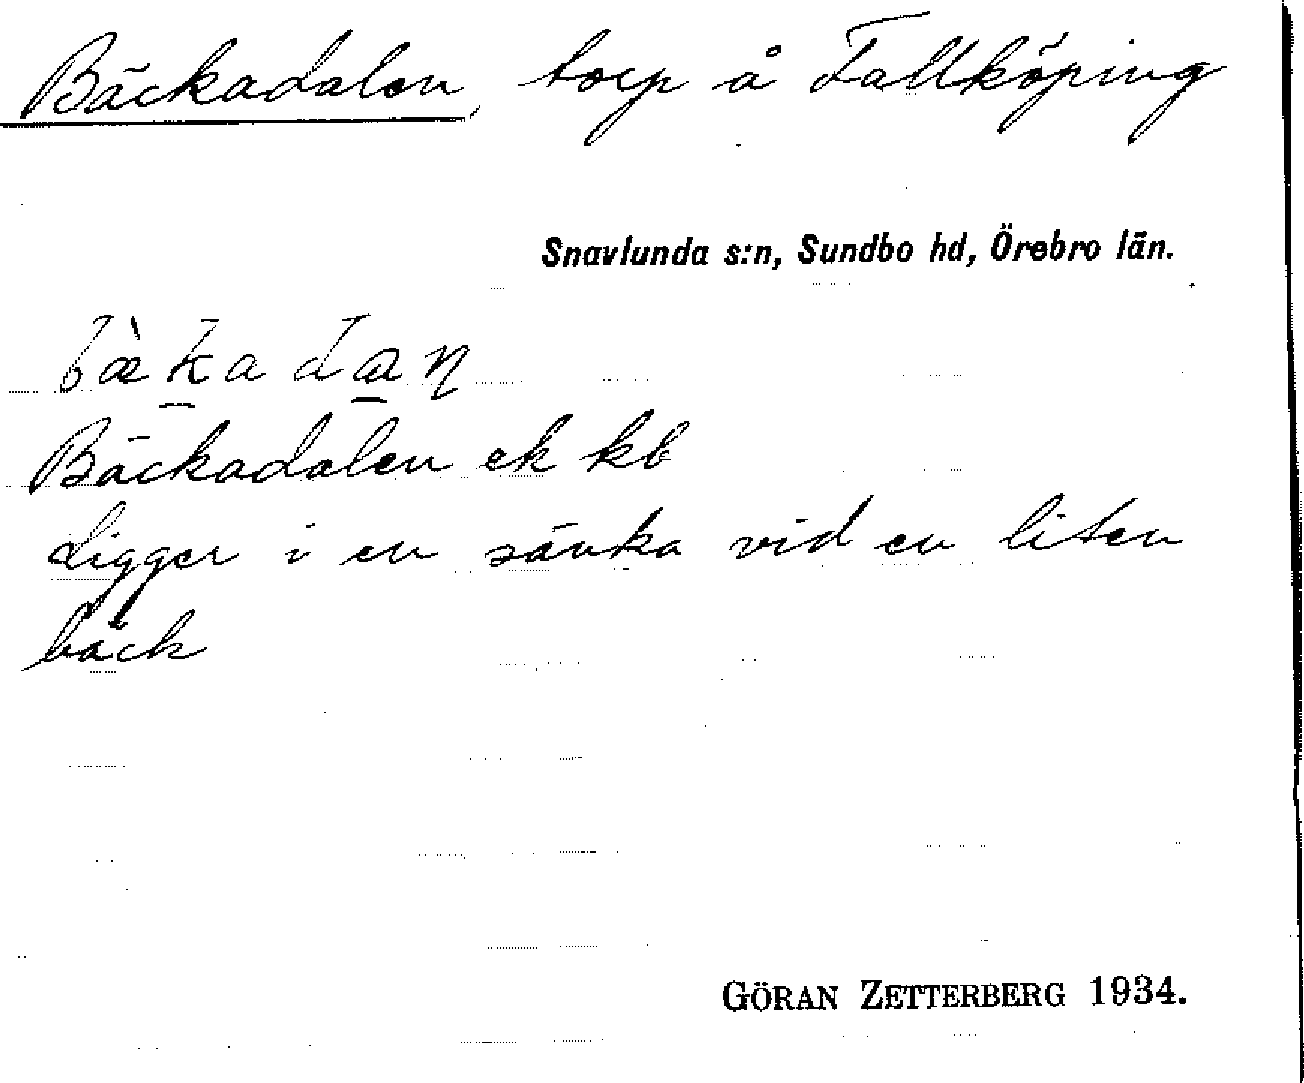 Bäckadalen, torp å Fallköping
Snavlunda s:n, Sundbo hd, Örebro län.
bæ̀kadaɳ
Bäckadalen ek kb
Ligger i en sänka vid en liten
bäck
GÖRAN ZETTERBERG 1934.